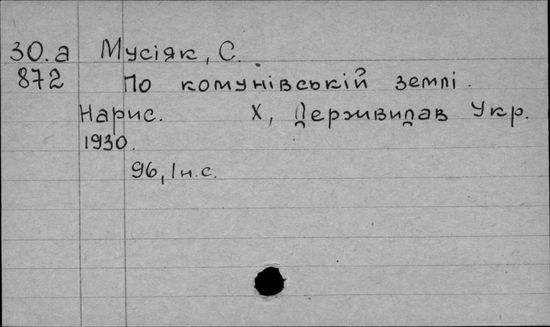 30.а Мусіяк, С.
872 По комунівській землі.
Нарис. Х, Держвидав Укр.
1930.
96, Ін.с.